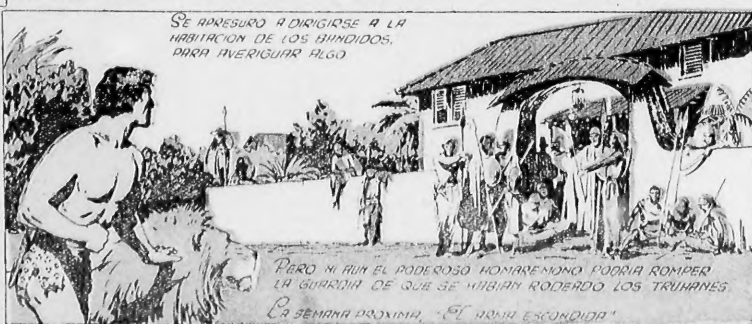 SE APRESURO A DIRIGIRSE A LA
HABITACION DE LOS BANDIDOS,
PARA AVERIGUAR ALGO
PERO NI AUN EL PODEROSO HOMBRE MONO PODRIA ROMPER
LA GUARDIA DE QUE SE HABIAN RODEADO LOS TRUHANES.
LA SEMANA PROXIMA, "EL ARMA ESCONDIDA"